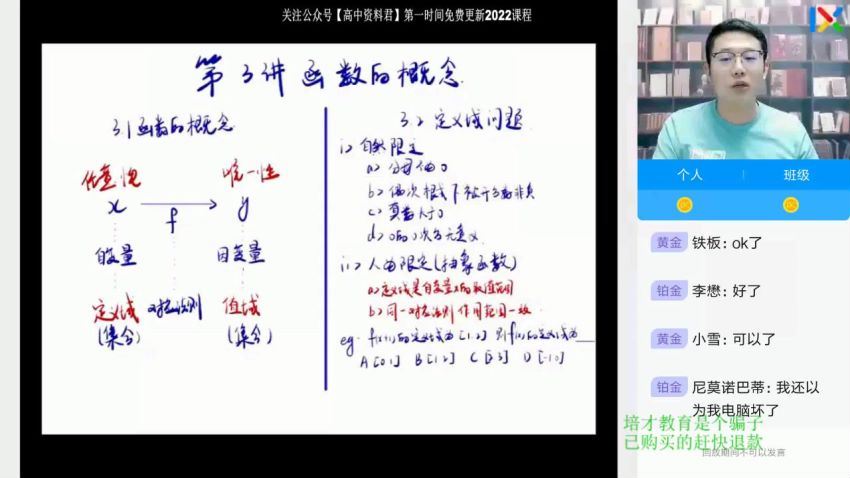 关注公众号【高中资料君】第一时间免费更新2022课程
第3讲 函数的概念
3.1 函数的概念
任意性 唯一性
x f y
自变量 因变量
定义域 对应法则 值域
(集合) (集合)
3.2 定义域问题
i> 自然限定
a> 分母≠0
b> 偶次根式下被开方数非负
c> 真数大于0
d> 0的0次方无意义
ii> 人为限定(抽象函数)
a> 定义域是自变量x的取值范围
b> 同一对应法则作用范围一致
eg. 的定义域为[1,2] 则 的定义域为
A B C D
个人 班级
黄金 铁板：ok了
铂金 李懋：好了
黄金 小雪：可以了
铂金 尼莫诺巴蒂：我还以
为我电脑坏了
培才教育是个骗子
已购买的赶快退款
回放期间不可以发言